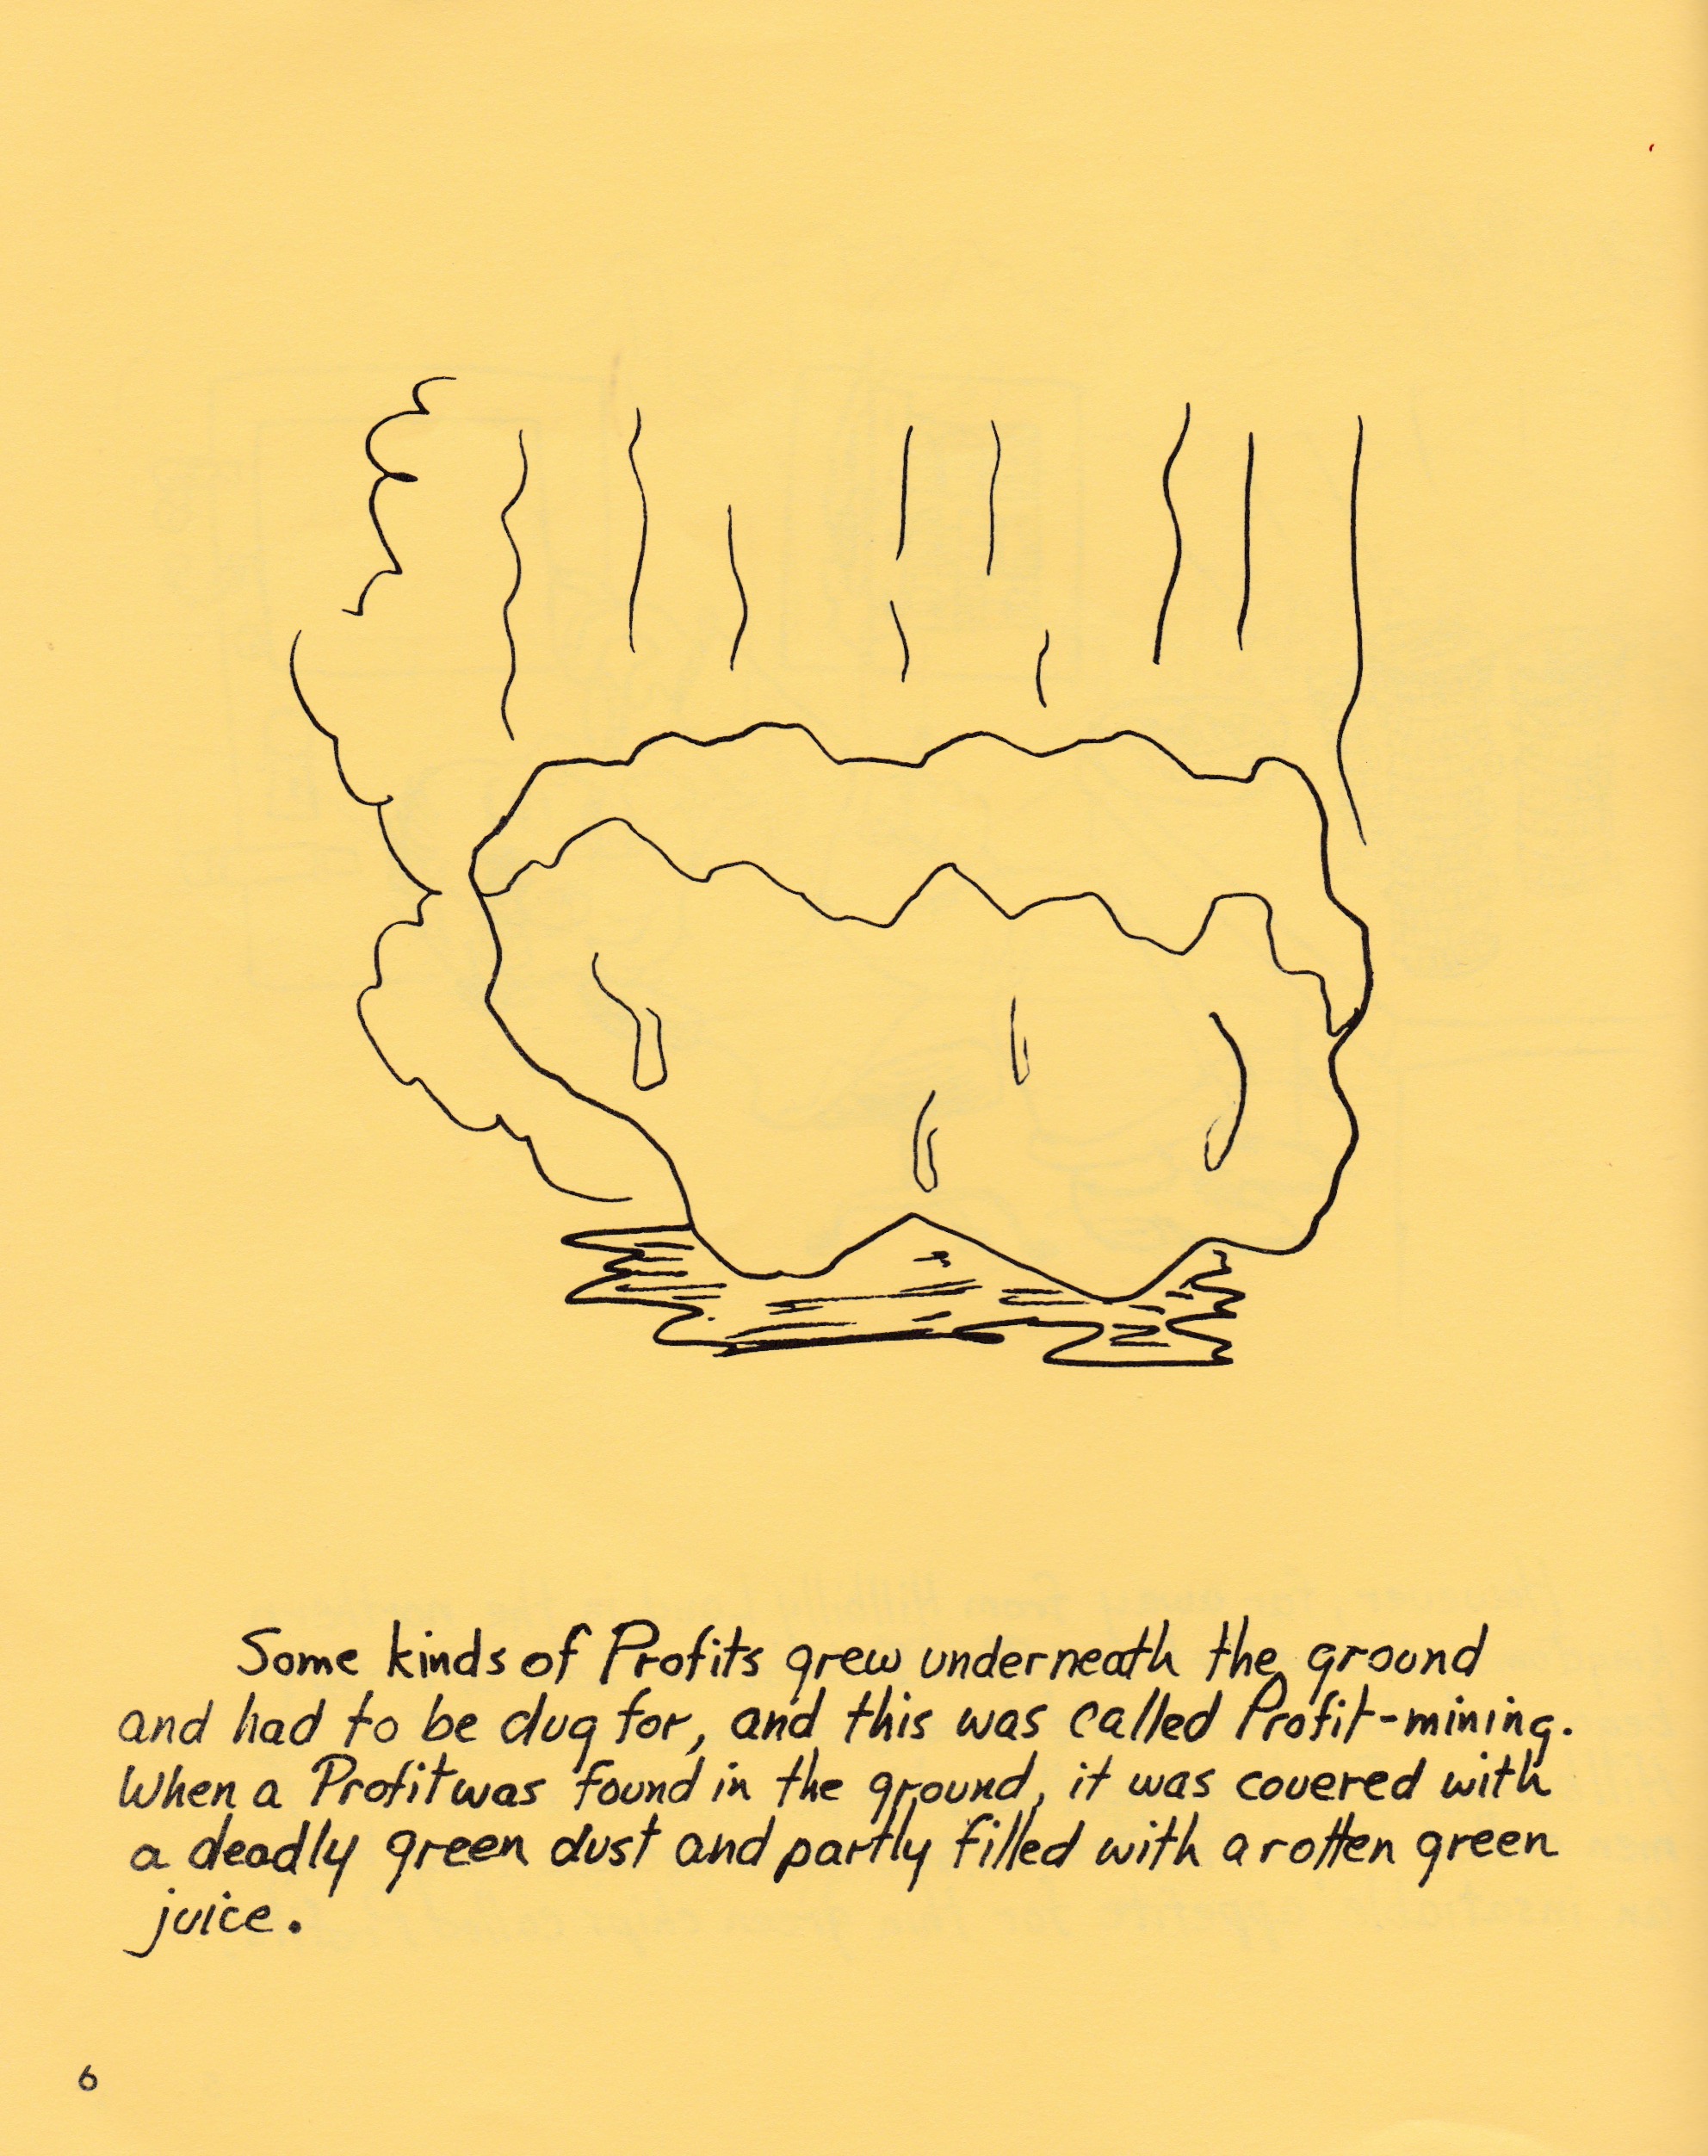 Some kinds of Profits grew underneath the ground
and had to be dug for, and this was called Profit-mining.
When a Profit was found in the ground, it was covered with
a deadly green dust and partly filled with a rotten green
juice.
6